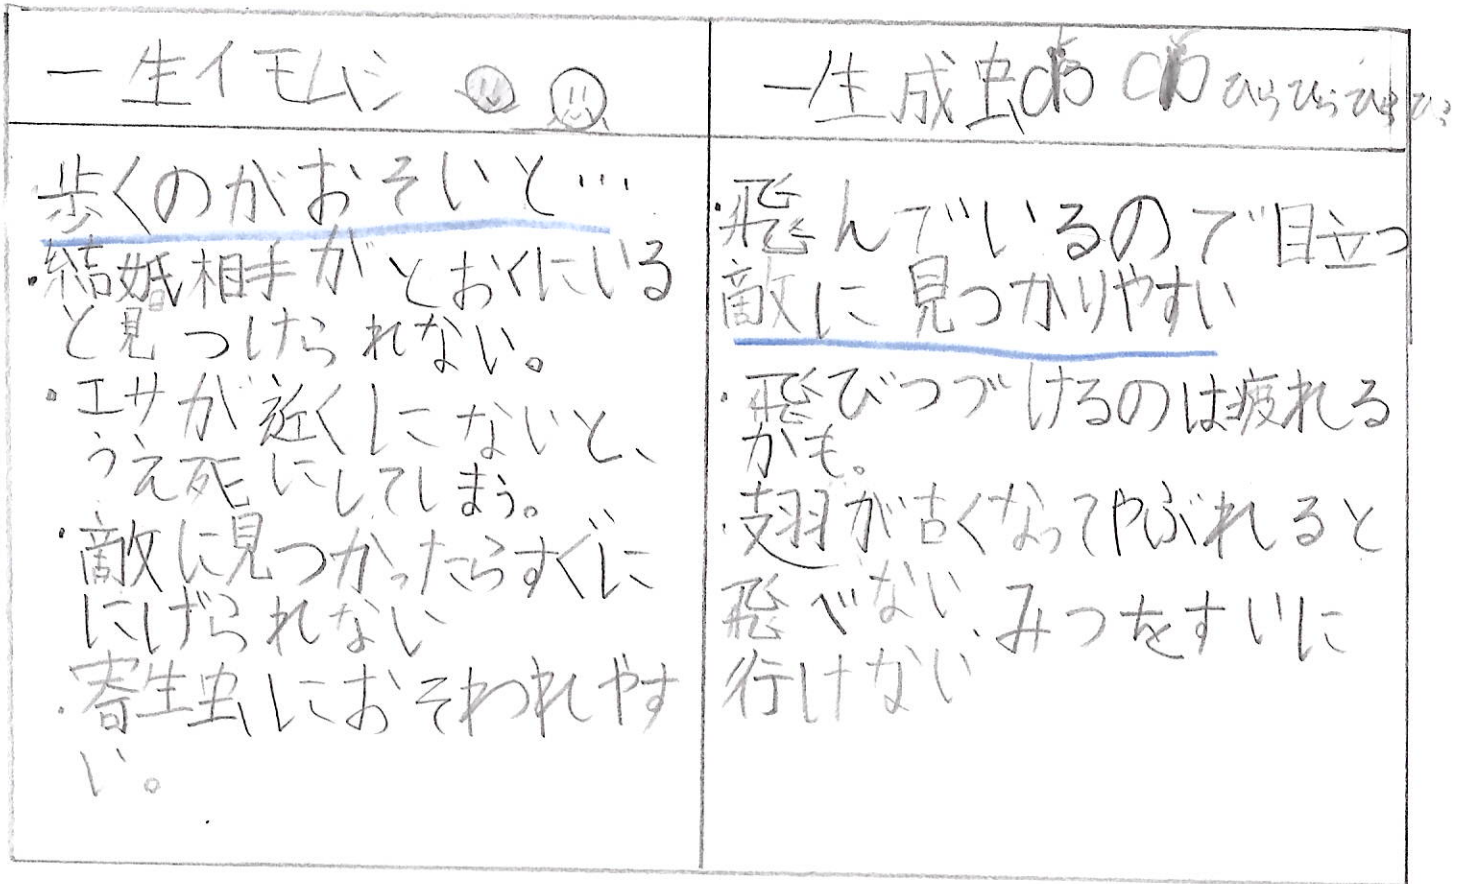 一生イモムシ
歩くのがおそいと…
・結婚相手がとおくにいる
と見つけられない。
・エサが近くにないと、
うえ死にしてしまう。
・敵に見つかったらすぐに
にげられない
・寄生虫におそわれやす
い。
一生成虫 ひらひらひらひら
・飛んでいるので目立つ
敵に見つかりやすい
・飛びつづけるのは疲れる
かも。
・翅が古くなってやぶれると
飛べない、みつをすいに
行けない